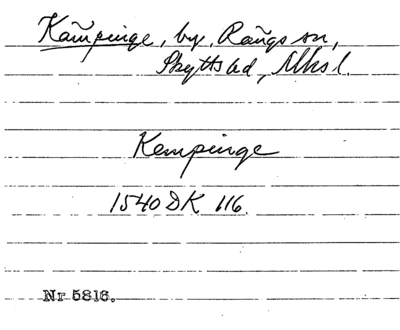 Kämpinge, by, Rängs sn,
Skytts hd, Mlhs l.
Kempinge
1540 DK 116.
Nr 5816.